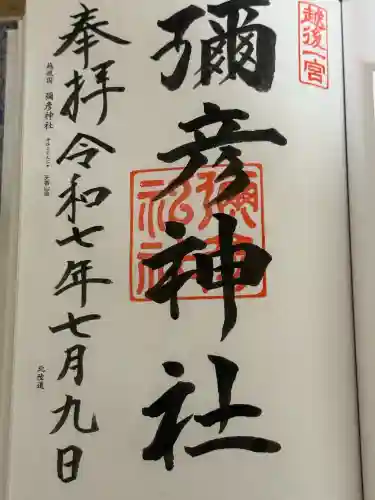 越後一宮
彌彦神社
彌彦神社
奉拝 令和七年七月九日
越後国 彌彦神社
北陸道